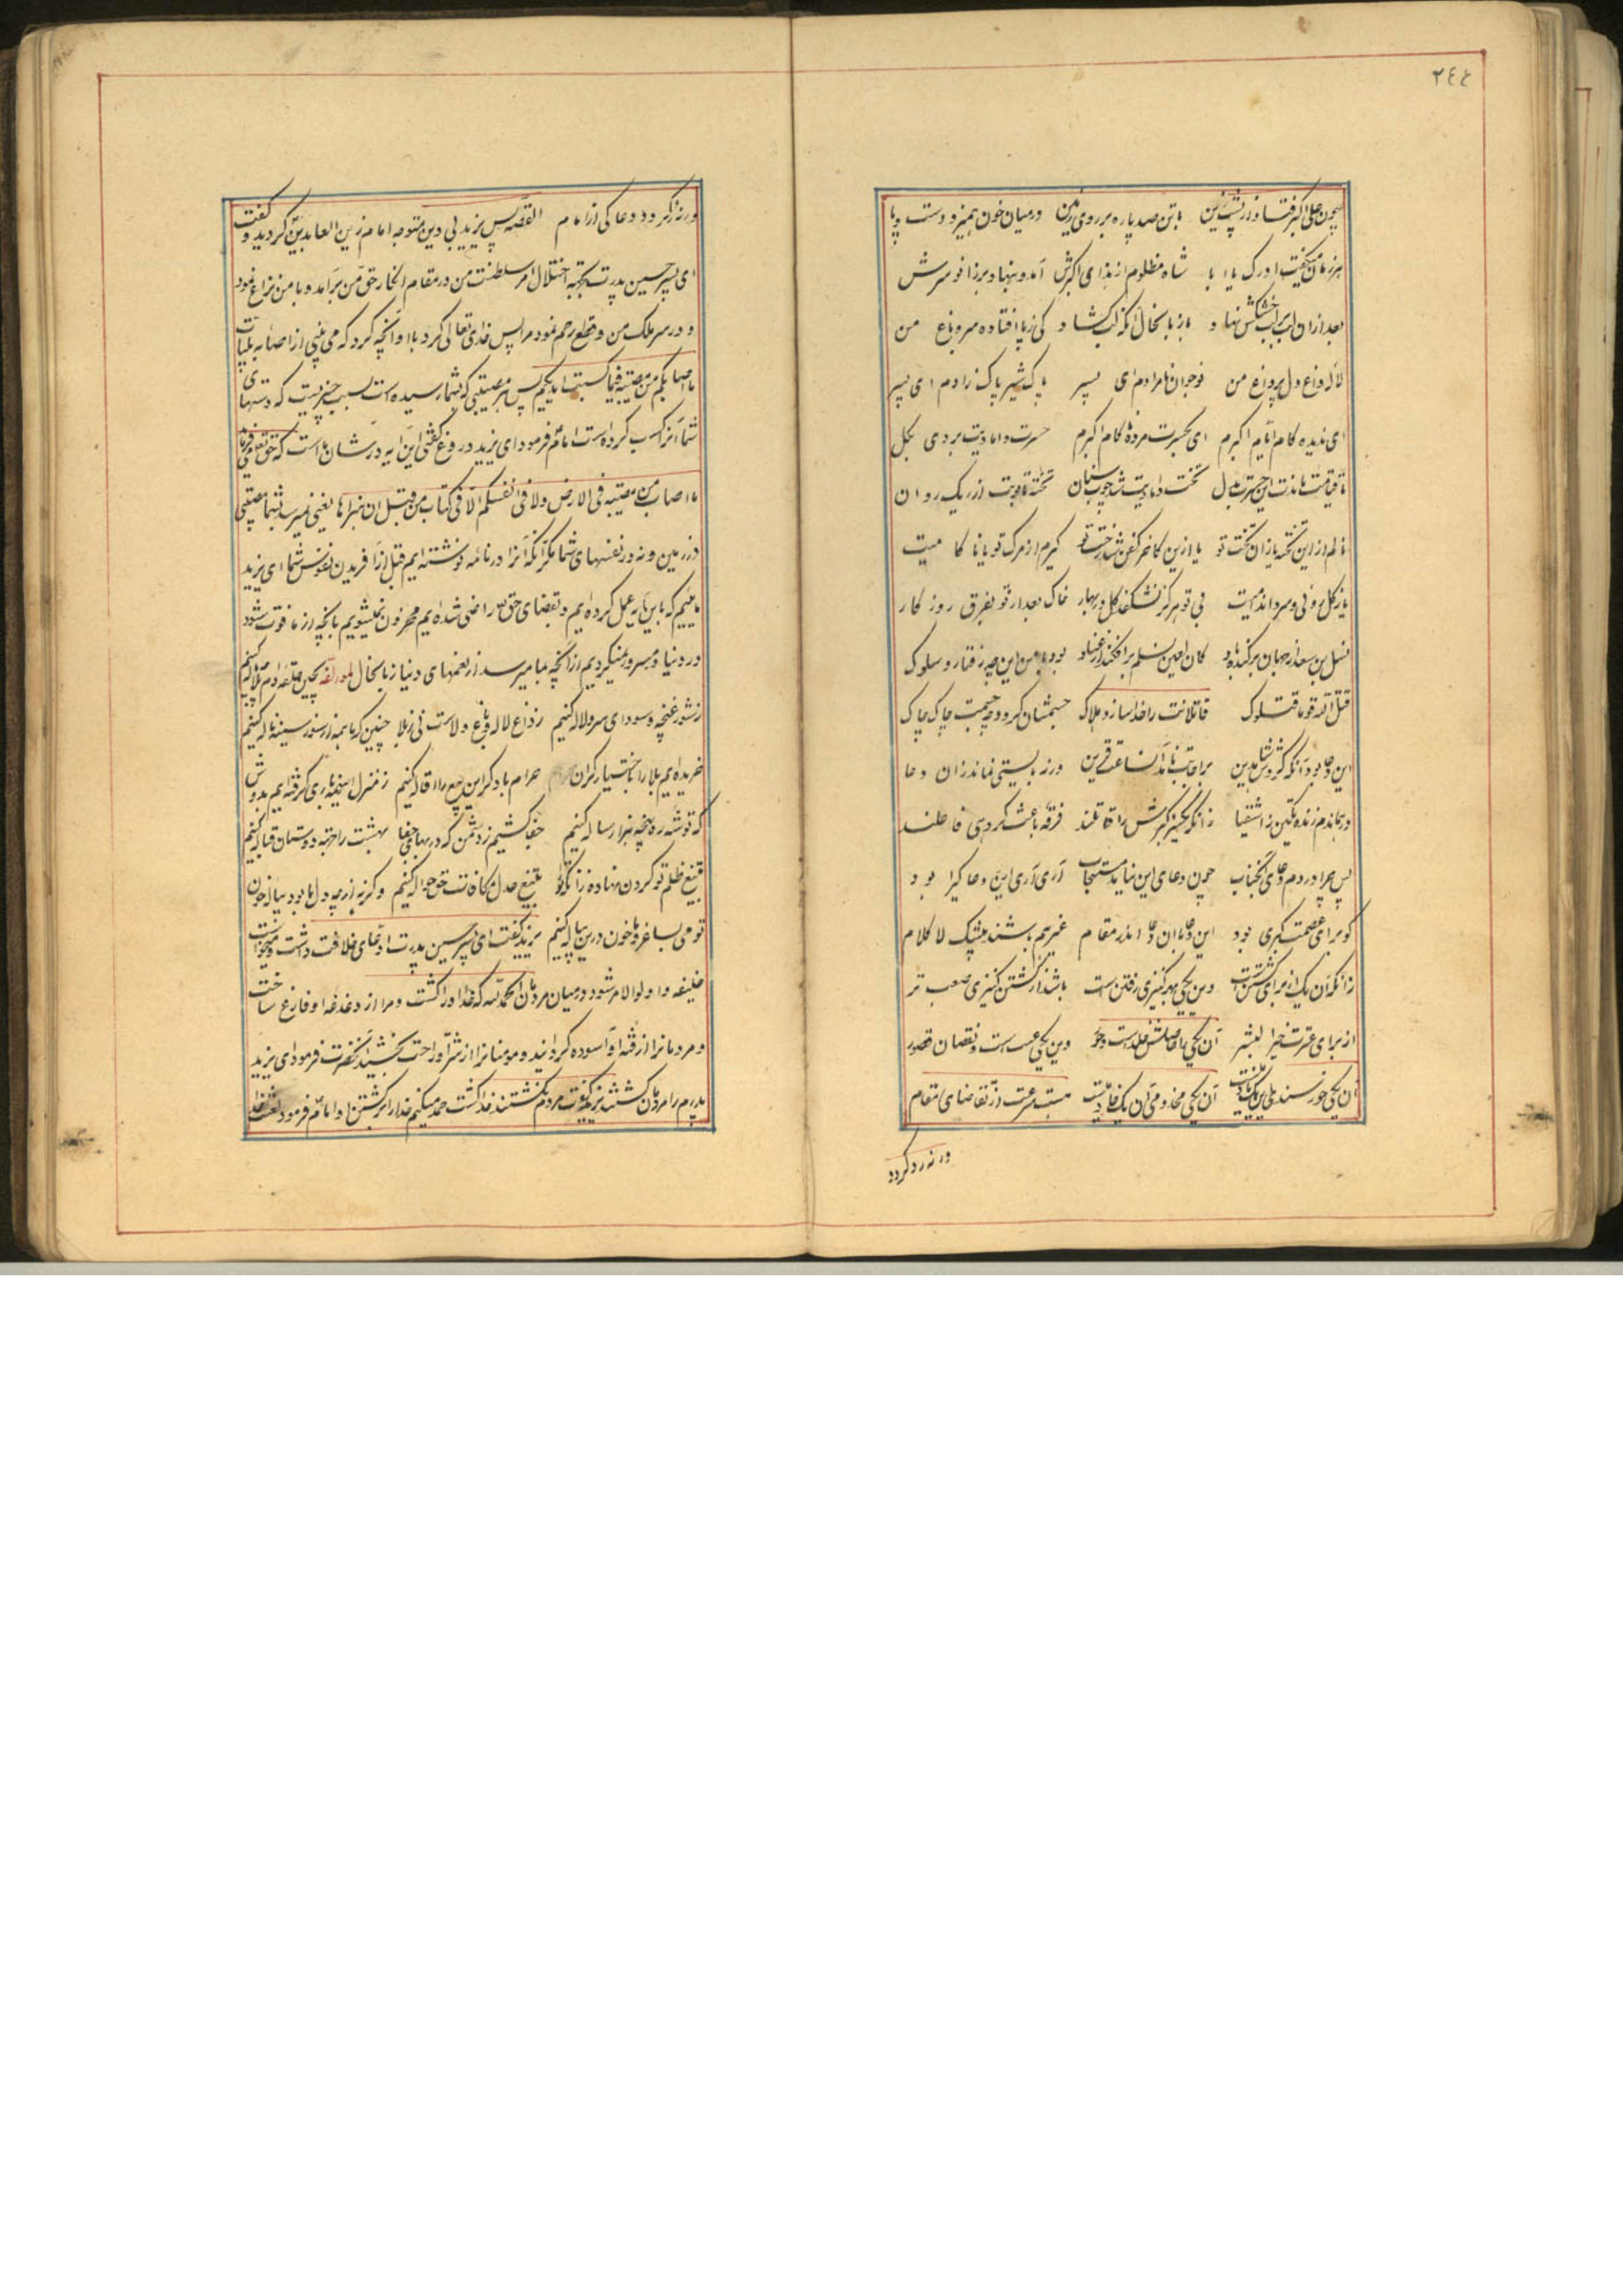 ٢٤٤
همچون علی اکبر فتاد از پشت زین با تن صد پاره بر روی زمین در میان خون همیزد دست و پا
هر زمان میگفت ادرک یا ابا شاه مظلوم از ندای اکبرش آمد و بنهاد بر زانو سرش
بعد از ان لب بر لب خشکش نهاد باز با نحال انکه لب کشاد کی ز پا افتاده سرو باغ من
لاله داغ دل پر داغ من نوجوان نامرادم ای پسر پاک شیر پاک زادم ای پسر
ای ندیده کام ایام اکبرم ای بحسرت مرده ناکام اکبرم حسرت دامادیت بردی بکل
تا قیامت ماندت این حسرت بدل تخت دامادیت شد چوب سنان تخته تابوت از ریک روان
نالم از این تخته یا زان تخت تو یا ازین کاخر کفن شد رخت تو کریم از مرک تو یا ناکامیت
یا ز کل روئی و سرو اندامیت بی تو هرکز نشکفد کل در بهار خاک بعد از تو بفرق روزکار
نسل بن سعد از جهان برکنده باد کان لعین نسلم بر افکند از عناد بود با من این چه رفتار و سلوک
قتل الله قوما قتلوک قاتلانت را خدا سازد هلاک جسمشان کردد چو جسمت چاک چاک
این دعا بود آنکه کر دوش بدین بر اجابت با قرین ورنه بایستی نماند زان دعا
در بماندم زنده یکتن ز اشقیا زانکه یکسر اکبرش را قاتلند فرقه باعث کروهی فاعلند
پس چرا در دم دعای انجناب چون دعای این نیامد مستجاب آری آری این دعا کیرا بود
کو برای عصمت کبری بود این دعا با ان دعا اندر مقام غیر هم باشند بیشک لا کلام
زانکه آن یک از برای کشتن است وین یکی بهر کنیزی رفتن است باشد از کشتن کنیزی صعب تر
از برای عترت خیر البشر آن یکی را حاصلش خلد است و حور وین یکی عیب است و نقصان قصور
آن یکی خورسند آن یکی مخدومی آن یک خادمیست هست سرعت از تقاضای مقام
ورنه رد کردد
ورنه رد کردد دعا کی از امام القصه پس یزید بی دین متوجه امام زین العابدین کردید و کفت
ای پسر حسین پدرت بجهه اختلال امر سلطنت من در مقام انکار حق من برآمد و با من نزاع نمود
و در سر ملک من و قطع رحم نمود مرا پس خدای تعالی کرد با او آنچه کرد که می بینی از اصابه بلیات
ما اصابکم من مصیبه فبما کسبت ایدیکم پس هر مصیبتی که بشما رسیده است بسبب چیزیست که دستهای
شما آنرا کسب کرده است امام فرمود ای یزید دروغ کفتی این آیه در شان ما است که حق تعالی میفرماید
ما اصاب من مصیبه فی الارض ولا فی انفسکم الا فی کتاب من قبل ان نبراها یعنی نمیرسد بشما مصیبتی
در زمین و نه در نفسهای شما مکر آنکه آنرا در نامه نوشته ایم قبل از آفریدن نفوس شما ای یزید
مائیم که باین آیه عمل کرده ایم و بقضای حق راضی شده ایم محزون نمیشویم بانچه از ما فوت شود
در دنیا و مسرور نمیکردیم از آنچه بما میرسد از نعمتهای دنیا زبانحال لمؤلفه
ز شور غنچه و سودای سر و لاله کنیم ز داغ لاله و باغ ولاست نی ز بلا چنین که ما همه از سوز سینه ناله کنیم
خریده ایم بلا را باختیار کران حرام باد کر این بیع را اقاله کنیم ز منزل ابدی کرفته ایم بدوش
که توشه ره پنجه هزار ساله کنیم جفا کشیم ز دشمن که در بهای جفا بهشت را بدوستان قباله کنیم
بتیغ ظلم تو کردن نهاده زانکه تو را بتیغ عدل مکافات حق حواله کنیم وکرنه از چه دل ما بود پیاله خون
تو می بساغر و ما خون درین پیاله کنیم یزید کفت ای پسر حسین پدرت ادعای خلافت داشت و میخواست
خلیفه و اولوالامر شود در میان مردمان الحمد لله که خدا او را کشت و مرا از دغدغه او فارغ ساخت
و مردمانرا از فتنه او آسوده کردانید و مومنانرا از شر او راحت بخشید آنحضرت فرمود ای یزید
پدرم را مردمان کشتند یزید کفت مردم نکشتند خدا کشت حمد میکنم خدا را بر کشتن او امام فرمود لعنت خدا